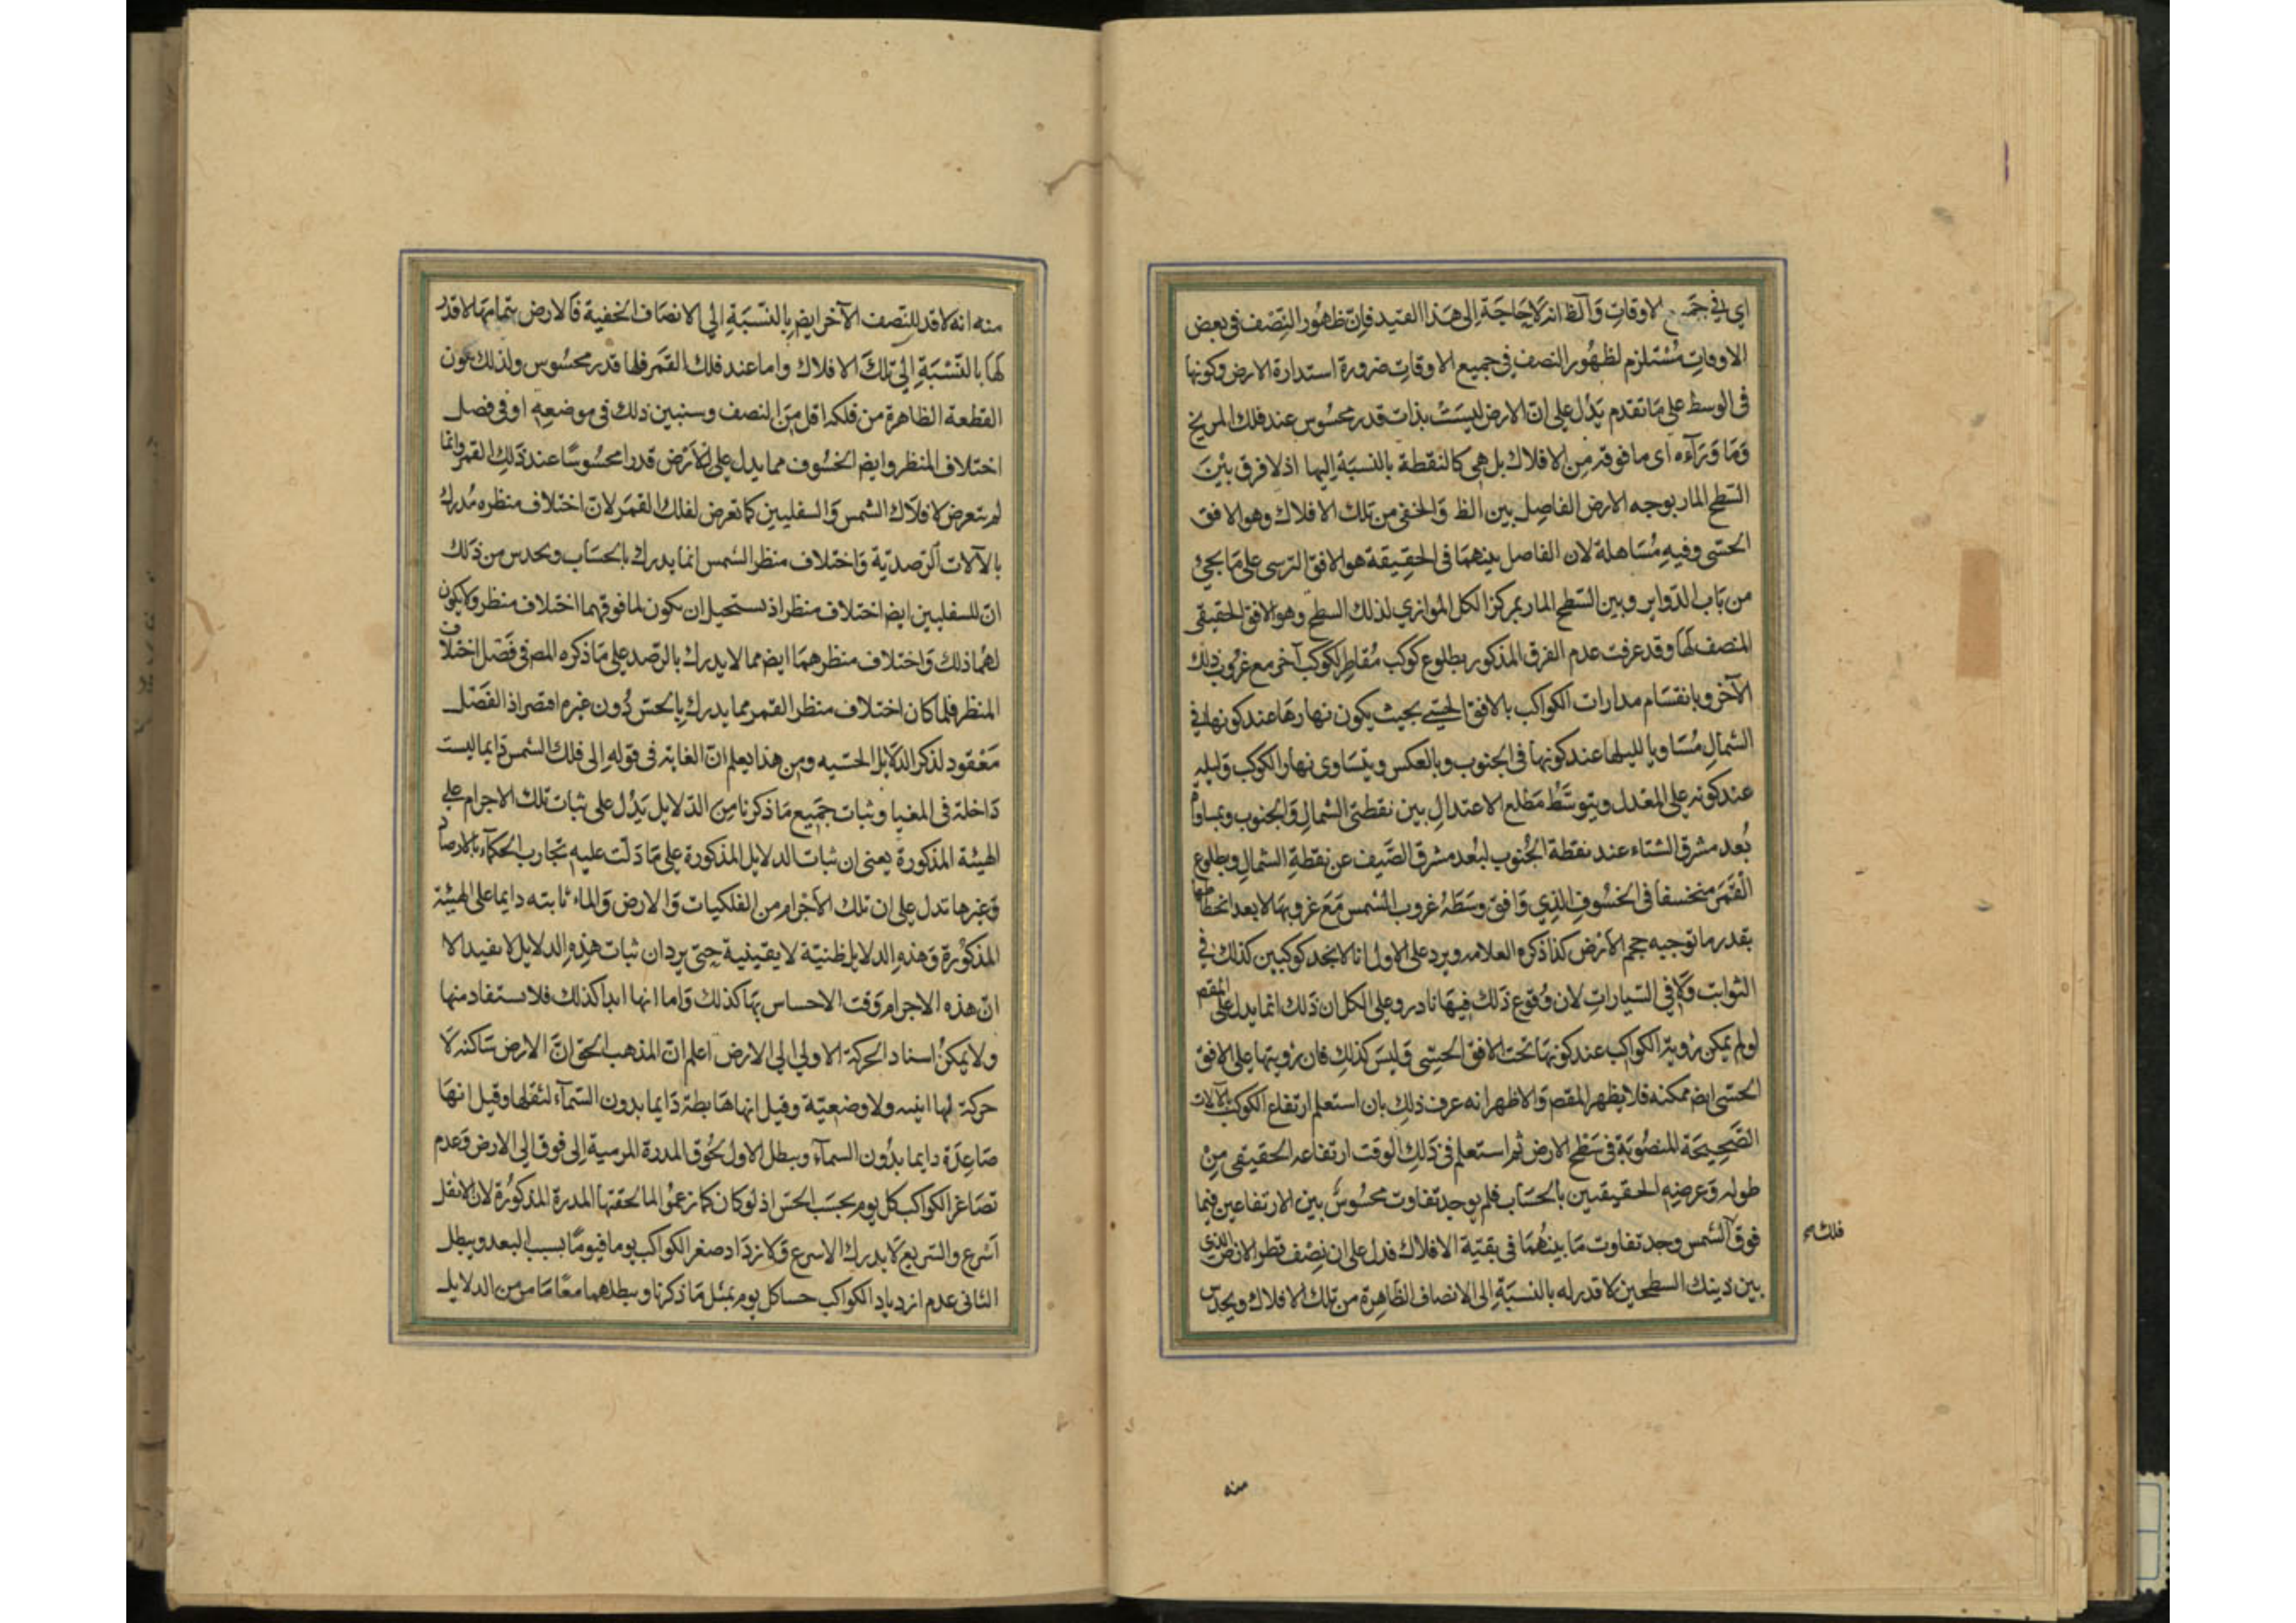 اي في جميع الاوقات والظ انه لاحاجة الى هذا القيد فان ظهور النصف في بعض
الاوقات مستلزم لظهور النصف في جميع الاوقات ضرورة استدارة الارض وكونها
في الوسط على ما تقدم يدل على ان الارض ليست بذات قدر محسوس عند فلك المريخ
وما وراءه اى ما فوقه من الافلاك بل هي كالنقطة بالنسبة اليها اذ لا فرق بين
السطح المار بوجه الارض الفاصل بين الظ والخفي من تلك الافلاك وهو الافق
الحسى وفيه مساهلة لان الفاصل بينهما في الحقيقة هو الافق الترسى على ما يجئ
من باب الدواير وبين السطح المار بمركز الكل الموازي لذلك السطح وهو الافق الحقيقى
المنصف لها وقد عرفت عدم الفرق المذكور بطلوع كوكب مقاطر لكوكب آخر مع غروب ذلك
الآخر وبانقسام مدارات الكواكب بالافق الحسى بحيث يكون نهارها عند كونها في
الشمال مساويا لليلها عند كونها في الجنوب وبالعكس ويتساوى نهار الكوكب وليله
عند كونه على المعدل ويتوسط مطلع الاعتدال بين نقطتى الشمال والجنوب وبمساواة
بعد مشرق الشتاء عند نقطة الجنوب لبعد مشرق الصيف عن نقطة الشمال وبطلوع
القمر منخسفا في الخسوف الذي وافق وسطه غروب الشمس مع غروبها لا بعد انحطاطها
بقدر ما توجبه حجم الارض كذا ذكره العلامه ويرد على الاول انا لا نجد كوكبين كذلك في
الثوابت ولا في السيارات لان وقوع ذلك فيها نادر وعلى الكل ان ذلك انما يدل على المقصم
لو لم يمكن رؤية الكواكب عند كونها تحت الافق الحسى وليس كذلك فان رؤيتها على الافق
الحسى ايضم ممكنه فلا يظهر المقصم والاظهر انه عرف ذلك بان استعلم ارتفاع الكوكب بالآلات
الصحيحة المنصوبة في سطح الارض ثم استعلم في ذلك الوقت ارتفاعه الحقيقى من
طوله وعرضه الحقيقيين بالحساب فلم يوجد تفاوت محسوس بين الارتفاعين فيما
فوق الشمس وجد تفاوت ما بينهما في بقية الافلاك فدل على ان نصف قطر الارض الذي
فلك
بين ذينك السطحين لا قدر له بالنسبة الى الانصاف الظاهرة من تلك الافلاك ويحدس
منه
منه انه لا قدر للنصف الآخر ايضم بالنسبة الى الانصاف الخفية فالارض بتمامها لا قدر
لها بالنسبة الى تلك الافلاك واما عند فلك القمر فلها قدر محسوس ولذلك تكون
القطعة الظاهرة من فلكه اقل من النصف وسنبين ذلك في موضعه او في فصل
اختلاف المنظر وايضم الخسوف مما يدل على ان الارض قدرا محسوسا عند ذلك القمر وانما
لم يتعرض لافلاك الشمس والسفليين كما تعرض لفلك القمر لان اختلاف منظره مدرك
بالآلات الرصدية واختلاف منظر الشمس انما يدرك بالحساب ويحدس من ذلك
ان للسفليين ايضم اختلاف منظر اذ يستحيل ان يكون لما فوقهما اختلاف منظر ولا يكون
لهما ذلك واختلاف منظرهما ايضم مما لا يدرك بالرصد على ما ذكره المصم في فصل اختلاف
المنظر فلما كان اختلاف منظر القمر مما يدرك بالحس دون غيره اقتصر اذ الفصل
معقود لذكر الدلايل الحسيه ومن هذا يعلم ان الغاية في قوله الى فلك الشمس دايما ليست
داخلة في المغيا وثبات جميع ما ذكرنا من الدلايل يدل على ثبات تلك الاجرام على
الهيئة المذكورة يعنى ان ثبات الدلايل المذكورة على ما دلت عليه تجارب الحكماء بالارصاد
وغيرها تدل على ان تلك الاجرام من الفلكيات والارض والماء ثابته دايما على الهيئة
المذكورة وهذه الدلايل ظنية لا يقينية حتى يرد ان ثبات هذه الدلايل لا يفيد الا
ان هذه الاجرام وقت الاحساس بها كذلك واما انها ابدا كذلك فلا يستفاد منها
ولا يمكن اسناد الحركة الاولى الى الارض اعلم ان المذهب الحق ان الارض ساكنة لا
حركة لها اينيه ولا وضعية وقيل انها هابطة دايما بدون السماء لثقلها وقيل انها
صاعدة دايما بدون السماء ويبطل الاول لحوق المدرة المرمية الى فوق الى الارض وعدم
تصاغر الكواكب كل يوم بحسب الحس اذ لو كان كما زعموا لما لحقتها المدرة المذكورة لان الاثقل
اسرع والسريع لا يدرك الاسرع ولازداد صغر الكواكب يوما فيوما بسبب البعد ويبطل
الثانى عدم ازدياد الكواكب حسا كل يوم بمثل ما ذكرنا ويبطلهما معا ما مر من الدلايل